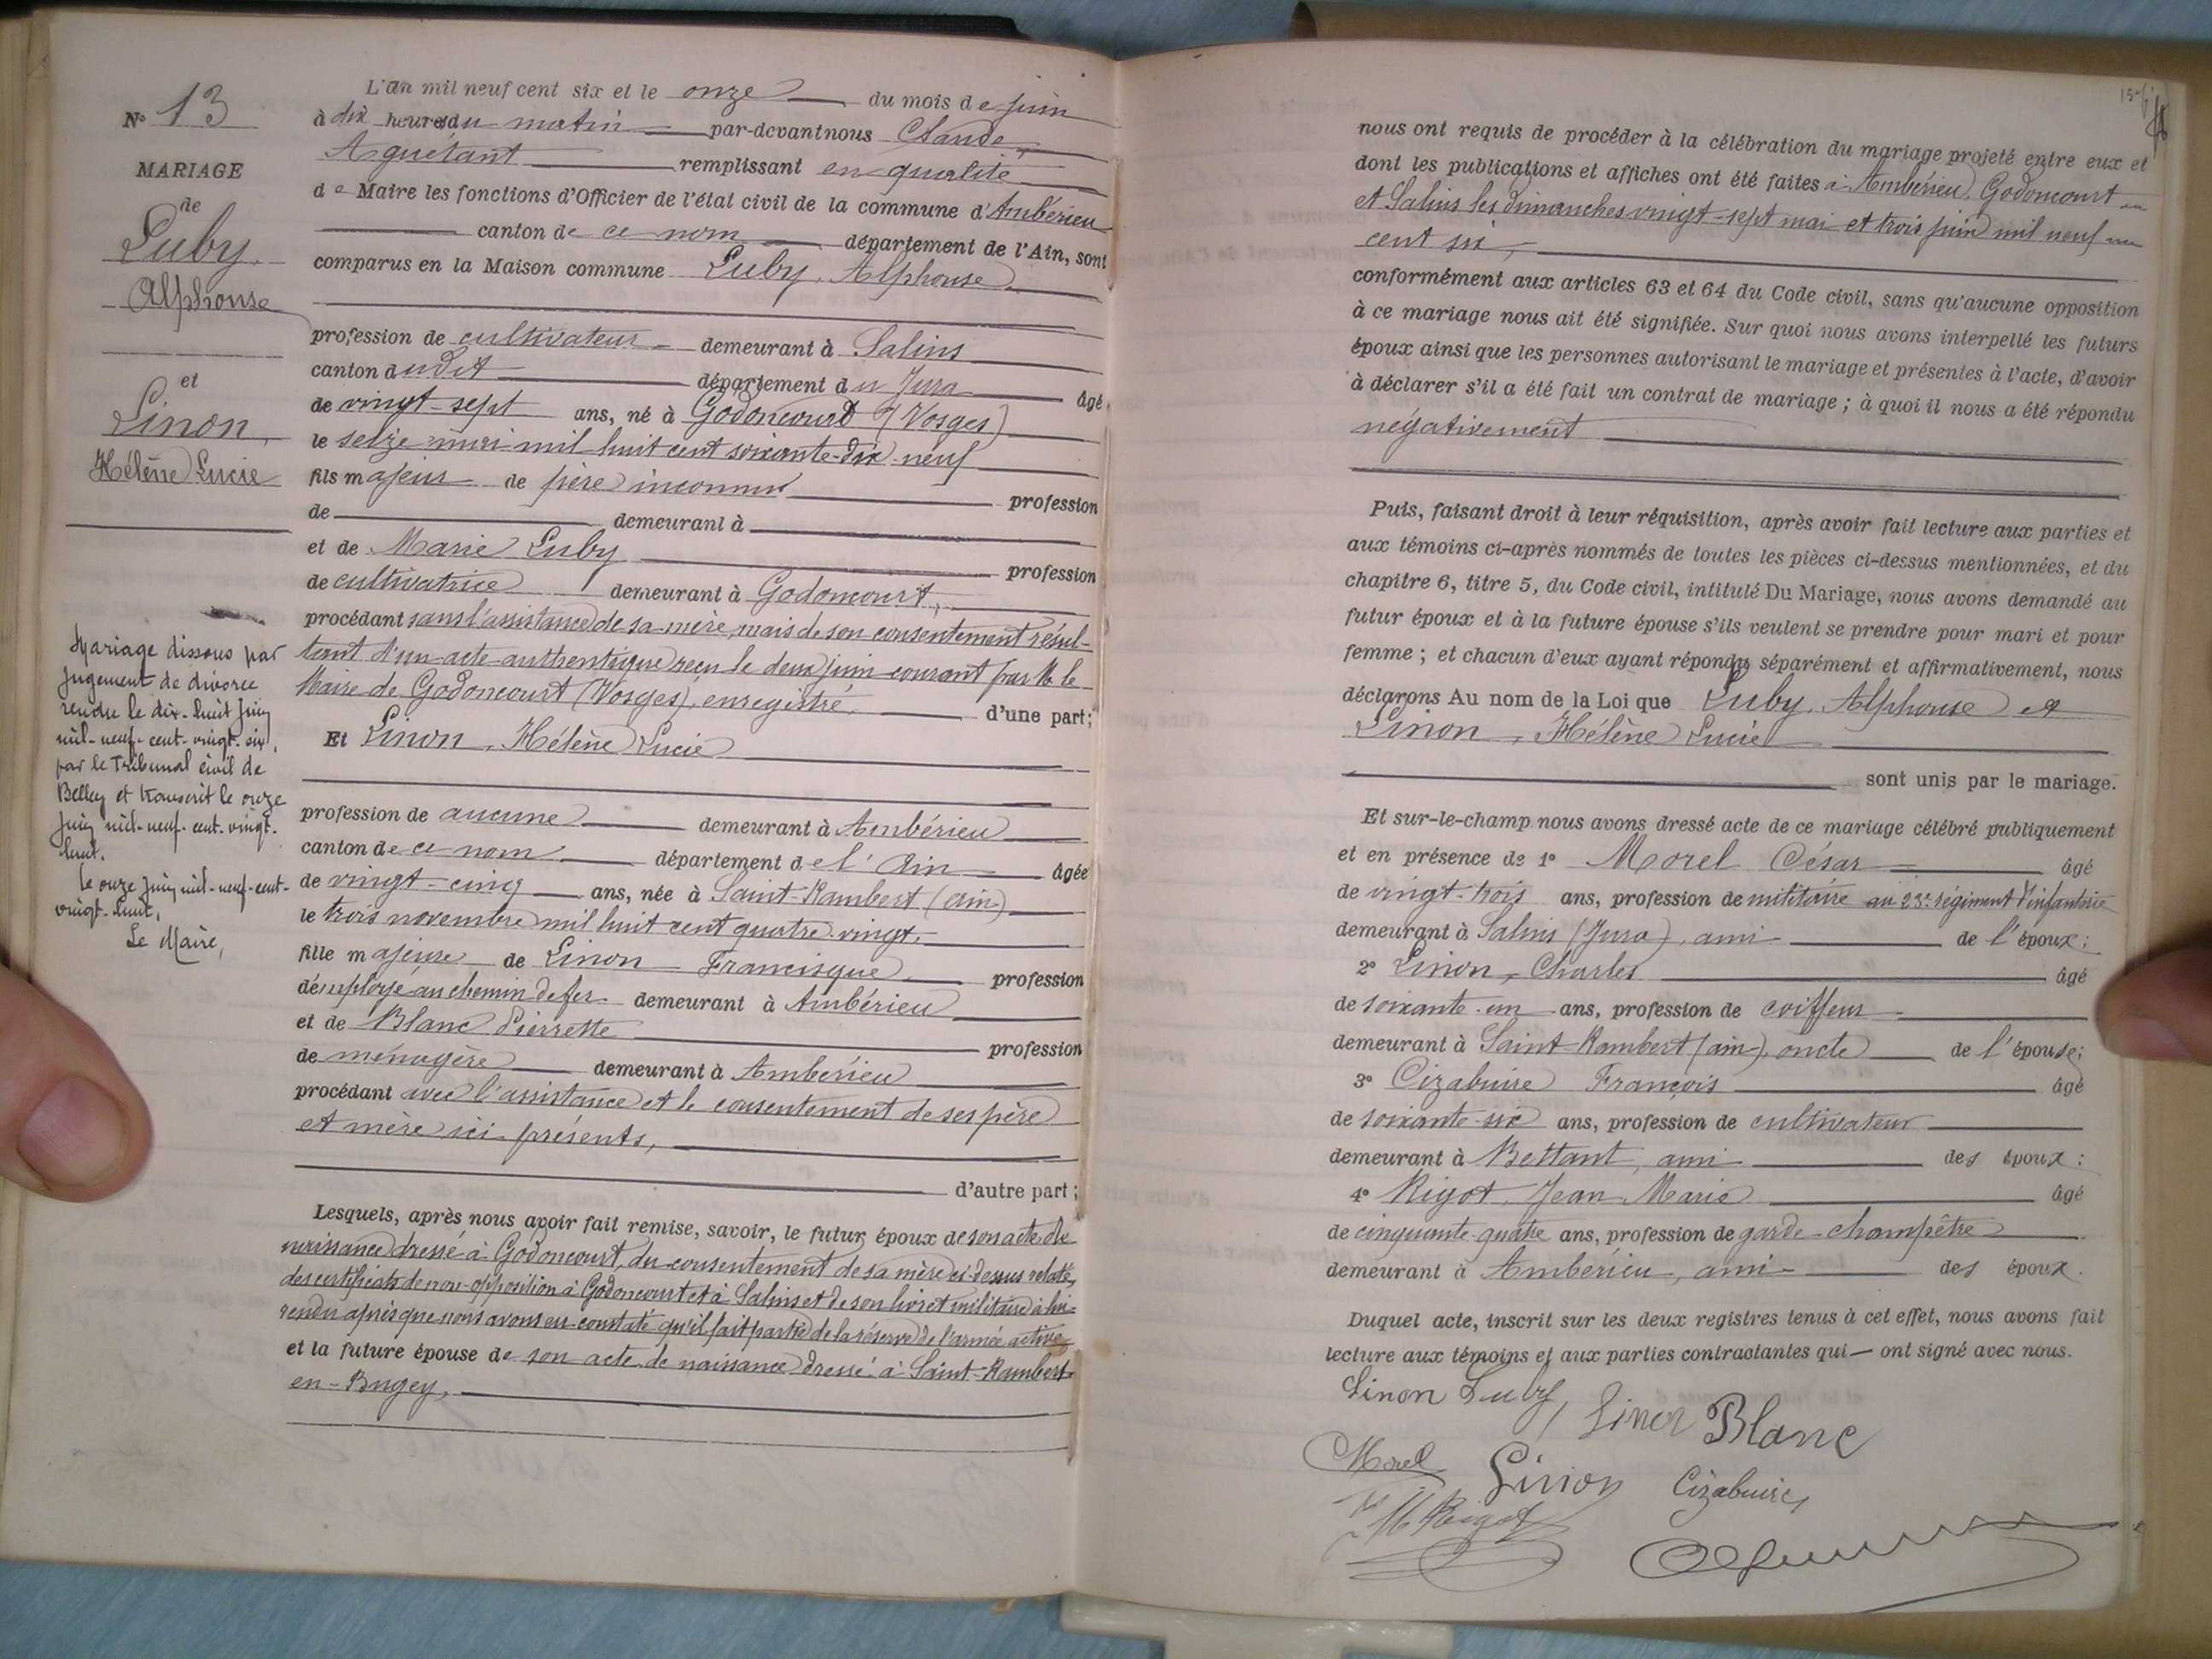 N° 13
MARIAGE
de
Luby
Alphonse
et
Linon,
Hélène Lucie
Mariage dissous par
jugement de divorce
rendu le dix-huit Juin
mil-neuf-cent-vingt-six,
par le Tribunal civil de
Belley et transcrit le onze
Juin mil-neuf-cent-vingt-
huit.
Le onze Juin mil-neuf-cent-
vingt-huit,
Le Maire,
L'an mil neuf cent six et le onze du mois de juin
à dix heures du matin par-devant nous Claude
Aguétant remplissant en qualité
de Maire les fonctions d'Officier de l'état civil de la commune d'Ambérieu
canton de ce nom département de l'Ain, sont
comparus en la Maison commune Luby, Alphonse
profession de cultivateur demeurant à Salins
canton dudit département du Jura âgé
de vingt-sept ans, né à Godoncourt (Vosges)
le seize mai mil huit cent soixante-dix-neuf
fils majeur de père inconnu profession
de demeurant à
et de Marie Luby profession
de cultivatrice demeurant à Godoncourt,
procédant sans l'assistance de sa mère, mais de son consentement résul-
tant d'un acte authentique reçu le deux juin courant par M. le
Maire de Godoncourt (Vosges), enregistré, d'une part;
Et Linon, Hélène Lucie
profession de aucune demeurant à Ambérieu
canton de ce nom département de l'Ain âgée
de vingt-cinq ans, née à Saint-Rambert (Ain)
le trois novembre mil huit cent quatre-vingt,
fille majeure de Linon Francisque profession
d'employé au chemin de fer demeurant à Ambérieu
et de Blanc Pierrette profession
de ménagère demeurant à Ambérieu
procédant avec l'assistance et le consentement de ses père
et mère ici présents,
d'autre part;
Lesquels, après nous avoir fait remise, savoir, le futur époux de son acte de
naissance dressé à Godoncourt, du consentement de sa mère ci-dessus relaté,
des certificats de non-opposition à Godoncourt et à Salins et de son livret militaire à lui
rendu après que nous avons eu constaté qu'il fait partie de la réserve de l'armée active
et la future épouse de son acte de naissance dressé à Saint-Rambert-
en-Bugey,
nous ont requis de procéder à la célébration du mariage projeté entre eux et
dont les publications et affiches ont été faites à Ambérieu, Godoncourt
et Salins les dimanches vingt-sept mai et trois juin mil neuf
cent six,
conformément aux articles 63 et 64 du Code civil, sans qu'aucune opposition
à ce mariage nous ait été signifiée. Sur quoi nous avons interpellé les futurs
époux ainsi que les personnes autorisant le mariage et présentes à l'acte, d'avoir
à déclarer s'il a été fait un contrat de mariage; à quoi il nous a été répondu
négativement
Puis, faisant droit à leur réquisition, après avoir fait lecture aux parties et
aux témoins ci-après nommés de toutes les pièces ci-dessus mentionnées, et du
chapitre 6, titre 5, du Code civil, intitulé Du Mariage, nous avons demandé au
futur époux et à la future épouse s'ils veulent se prendre pour mari et pour
femme; et chacun d'eux ayant répondu séparément et affirmativement, nous
déclarons Au nom de la Loi que Luby, Alphonse et
Linon, Hélène Lucie
sont unis par le mariage.
Et sur-le-champ nous avons dressé acte de ce mariage célébré publiquement
et en présence de 1° Morel César âgé
de vingt-trois ans, profession de militaire au 23e régiment d'infanterie
demeurant à Salins (Jura), ami de l'époux;
2° Linon, Charles âgé
de soixante-un ans, profession de coiffeur
demeurant à Saint-Rambert (Ain), oncle de l'épouse;
3° Cizabuire François âgé
de soixante-six ans, profession de cultivateur
demeurant à Bettant, ami des époux;
4° Rigot, Jean-Marie âgé
de cinquante-quatre ans, profession de garde-champêtre
demeurant à Ambérieu, ami des époux.
Duquel acte, inscrit sur les deux registres tenus à cet effet, nous avons fait
lecture aux témoins et aux parties contractantes qui ont signé avec nous.
Linon Luby Linon Blanc
Morel Linon Cizabuire
JM Rigot